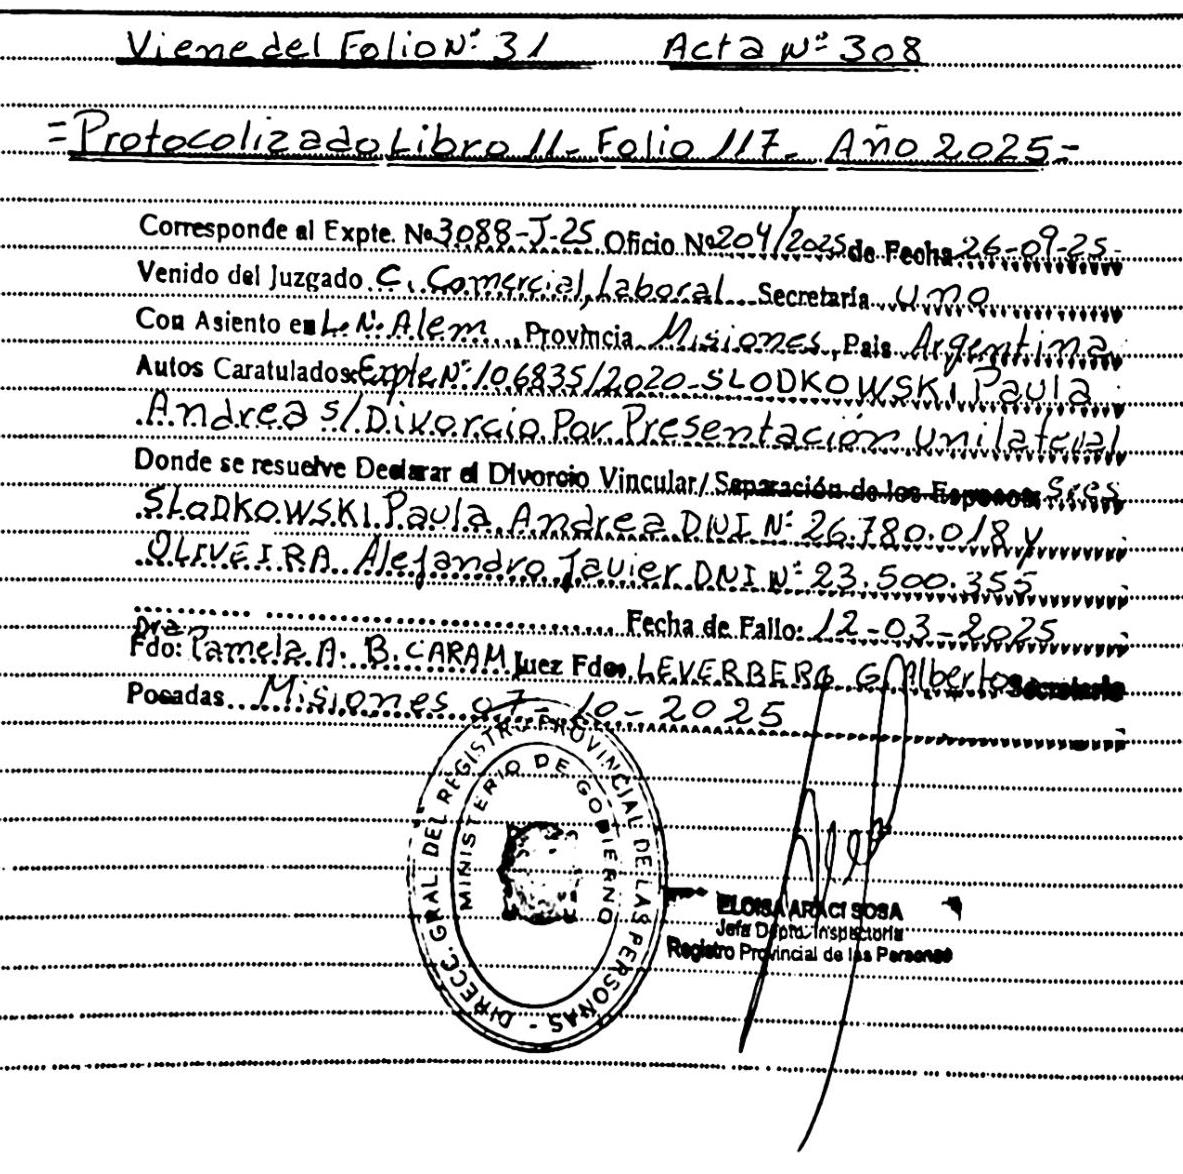 Viene del Folio Nº 31 Acta Nº 308
=Protocolizado Libro 11- Folio 117- Año 2025-
Corresponde al Expte. Nº 3088-J-25 Oficio Nº 204/2025 de Fecha 26-09-25-
Venido del Juzgado C. Comercial, Laboral Secretaría Uno
Con Asiento en L. N. Alem Provincia Misiones, Pais Argentina
Autos Caratulados: Expte Nº 106835/2020-SLODKOWSKI Paula
Andrea s/Divorcio Por Presentación Unilateral
Donde se resuelve Declarar el Divorcio Vincular/Separación de los Esposos: Sres
SLODKOWSKI Paula Andrea DNI Nº 26.780.018 y
OLIVEIRA Alejandro Javier DNI Nº 23.500.355
Fecha de Fallo: 12-03-2025
Dra
Fdo: Pamela A. B. CARAM Juez Fdo. LEVERBERG G. Alberto Secretario
Posadas Misiones 07-10-2025
DIRECC. GRAL DEL REGISTRO PROVINCIAL DE LAS PERSONAS -
MINISTERIO DE GOBIERNO
ELOISA ARACI SOSA
Jefa Dpto. Inspectoría
Registro Provincial de las Personas